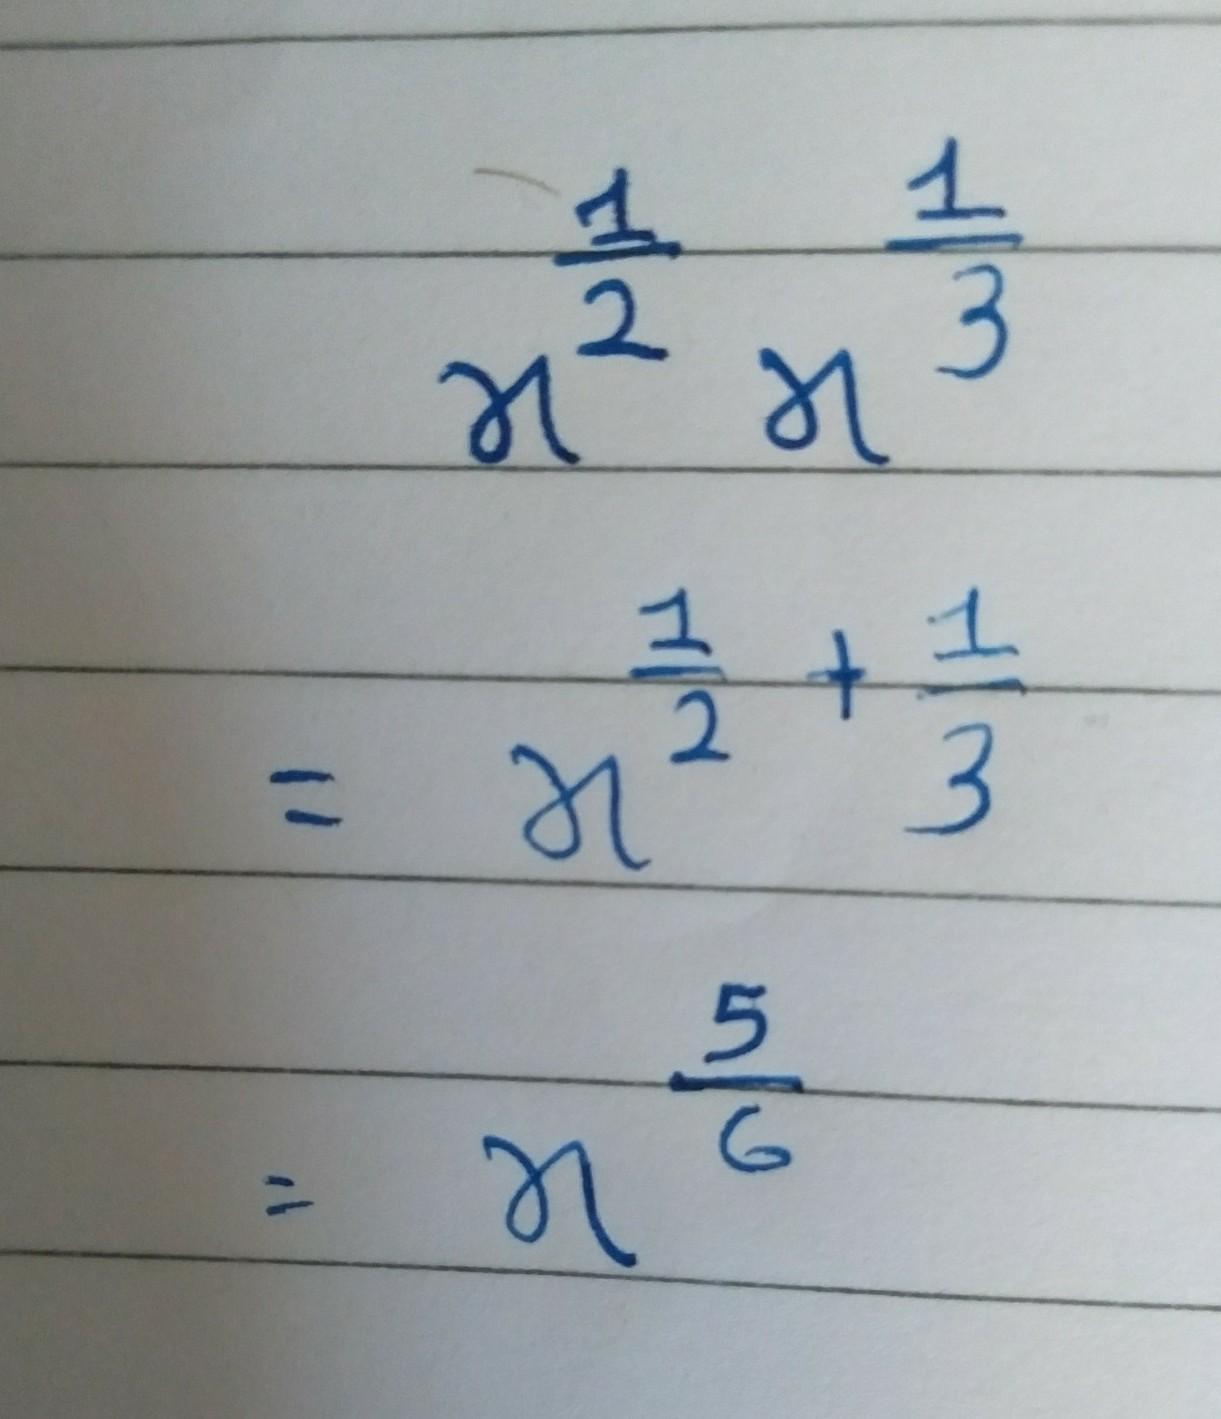 x^{\frac{1}{2}} x^{\frac{1}{3}}
= x^{\frac{1}{2} + \frac{1}{3}}
= x^{\frac{5}{6}}